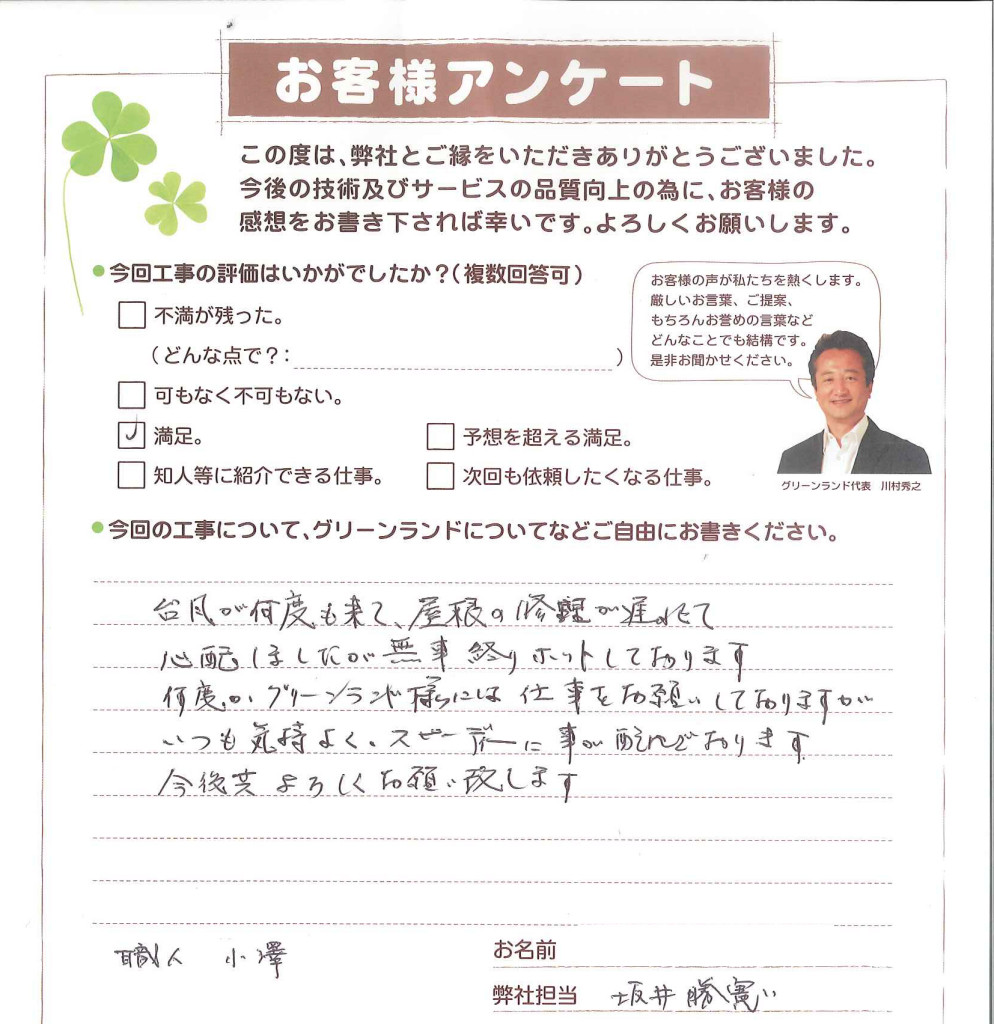 お客様アンケート
この度は、弊社とご縁をいただきありがとうございました。
今後の技術及びサービスの品質向上の為に、お客様の
感想をお書き下されば幸いです。よろしくお願いします。
今回工事の評価はいかがでしたか？（複数回答可）
不満が残った。
（どんな点で？：　）
可もなく不可もない。
満足。
予想を超える満足。
知人等に紹介できる仕事。
次回も依頼したくなる仕事。
お客様の声が私たちを熱くします。
厳しいお言葉、ご提案、
もちろんお誉めの言葉など
どんなことでも結構です。
是非お聞かせください。
グリーンランド代表　川村秀之
今回の工事について、グリーンランドについてなどご自由にお書きください。
台風が何度も来て、屋根の修理が遅れて
心配しましたが無事終りホットしております
何度かグリーンランド様には仕事をお願いしておりますが
いつも気持よく、スピーディーに事が運んでおります
今後共よろしくお願い致します
職人　小澤
お名前
弊社担当　坂井勝